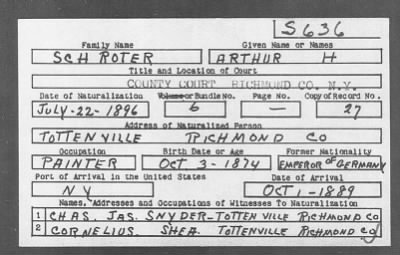 S636
Family Name Given Name or Names
SCHROTER ARTHUR H
Title and Location of Court
COUNTY COURT RICHMOND CO. N.Y.
Date of Naturalization Volume or Bundle No. Page No. Copy of Record No.
JULY-22-1896 6 — 27
Address of Naturalized Person
TOTTENVILLE RICHMOND CO
Occupation Birth Date or Age Former Nationality
PAINTER OCT 3-1874 EMPEROR OF GERMANY
Port of Arrival in the United States Date of Arrival
NY OCT 1-1889
Names, Addresses and Occupations of Witnesses To Naturalization
1 CHAS. JAS. SNYDER-TOTTENVILLE RICHMOND CO
2 CORNELIUS. SHEA. TOTTENVILLE RICHMOND CO